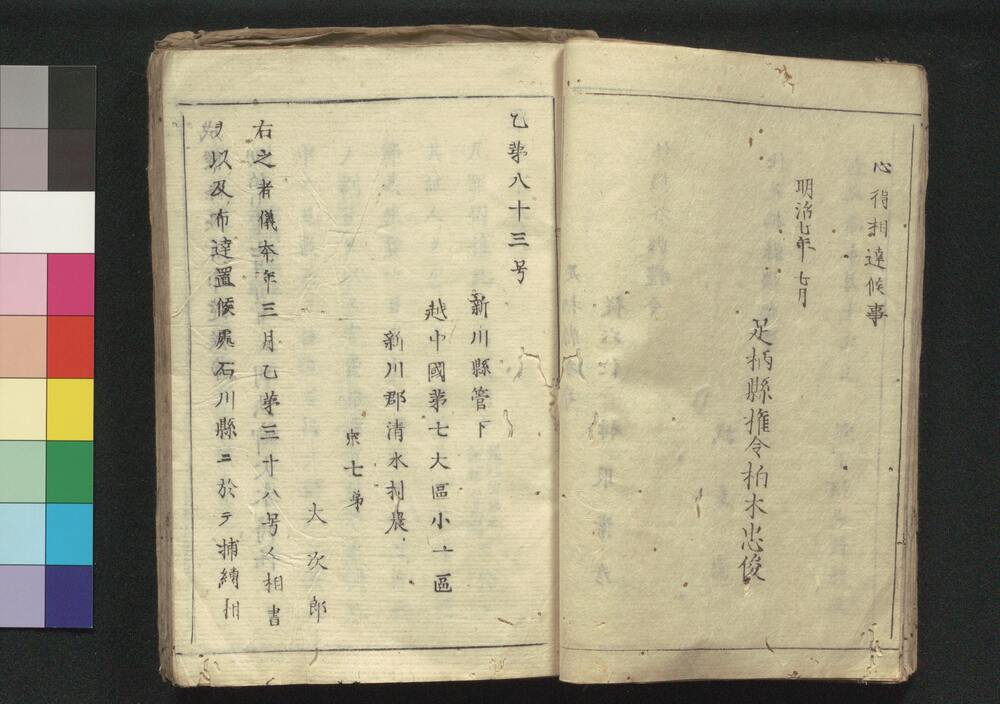 心得相達候事
明治七年七月
足柄縣権令柏木忠俊
乙第八十三号
新川縣管下
越中國第七大區小十一區
新川郡清水村農
宗七弟
大次郎
右之者儀本年三月乙第三十八号人相書
ヲ以及布達置候処石川縣ニ於テ捕縛相